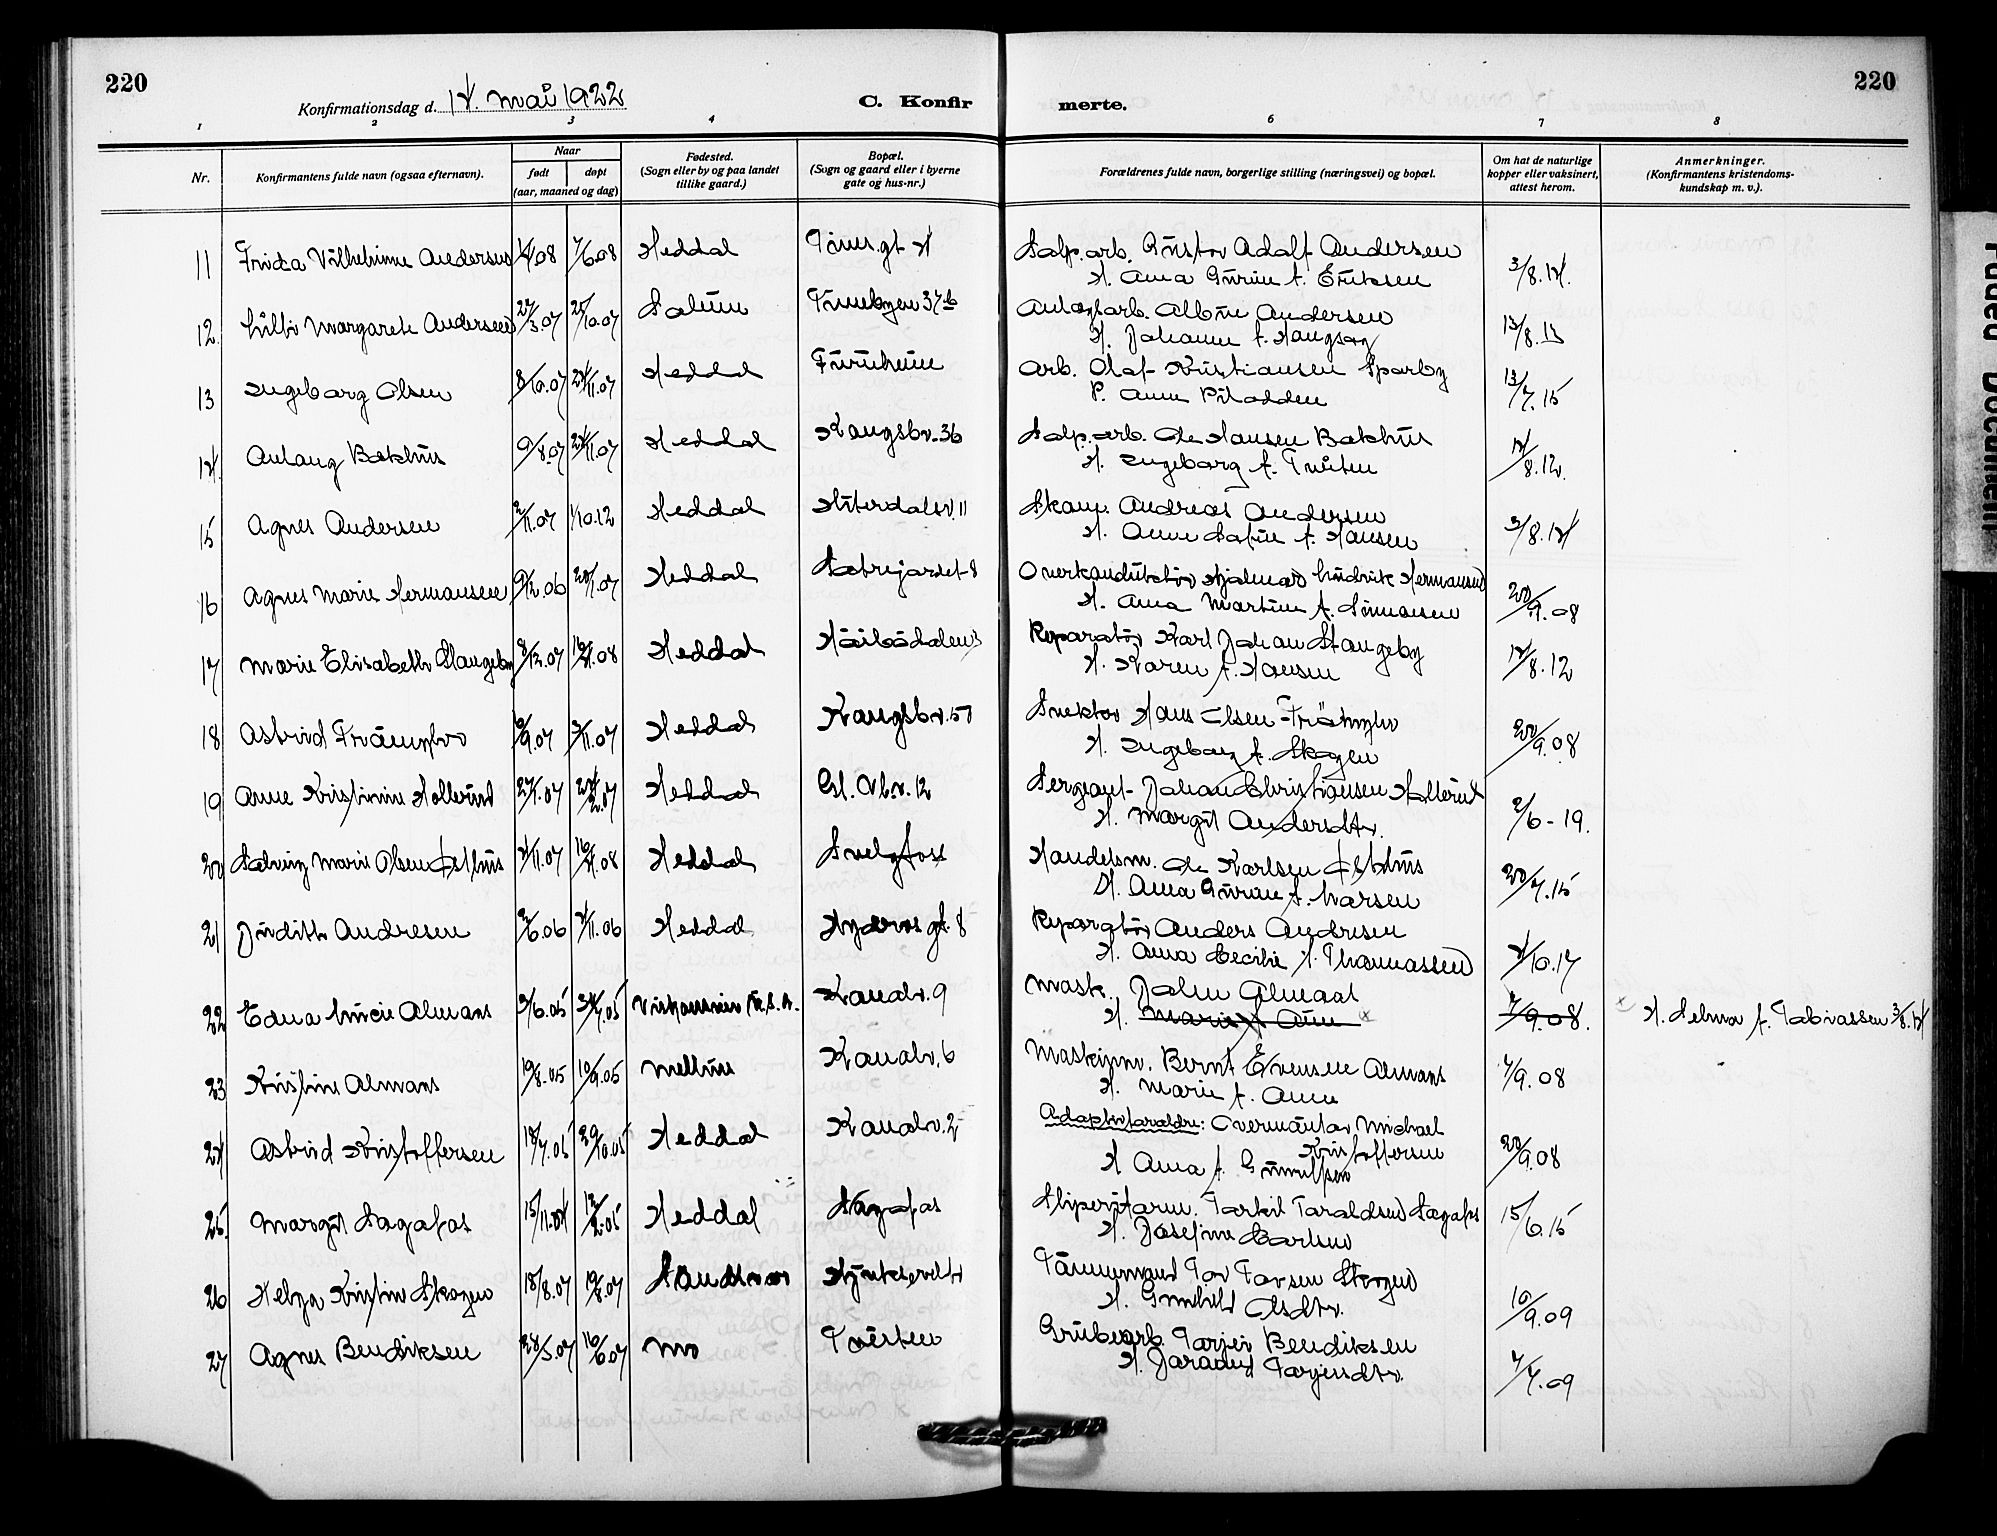 220
Konfirmationsdag d. 14. mai 1922
C. Konfir
merte.
220
1 2 3 4 6 7 8
Nr.
Konfirmantens fulde navn (ogsaa efternavn).
Naar
født døpt
(aar, maaned og dag)
Fødested.
(Sogn eller by og paa landet
tillike gaard.)
Bopæl.
(Sogn og gaard eller i byerne
gate og hus-nr.)
Forældrenes fulde navn, borgerlige stilling (næringsvei) og bopæl.
Om hat de naturlige
kopper eller vaksinert,
attest herom.
Anmerkninger.
(Konfirmantens kristendoms-
kundskap m. v.).
11 Frida Vilhelmine Andersen 7/6.08 Heddal Salp.arb. Gustav Adolf Andersen 3/8.14.
H. Anna Gurine f. Eriksen
12. Margarete Andersen 27/3.07 25/10.07 Solum Tinnebyen 37b Anlægsarb. Albin Andersen 13/8.13
H. Johanne f. Haugsag
13 Ingeborg Olsen 8/10.07 24/11.07 Heddal Furuheim Arb. Olaf Kristiansen Sparby 13/7.15
P. Anne Pilodden
14. Aslaug Bakhus 9/8.07 24/11.07 Heddal Kongsbv. 36 Salp.arb. Ole Hansen Bakhus 14/8.12
H. Ingeborg f. Tveiten
15 Agnes Andersen 2/11.07 1/10.12 Heddal Hiterdalsv. 11 Andreas Andersen 3/8.14
H. Anne Sofie f. Hansen
16 Agnes Marie Hermansen 9/12.06 20/1.07 Heddal Sætrejordet 8 Overkonduktør Hjalmar Hermansen 20/9.08
H. Anna Martine f. Simonsen
17 Marie Elisabeth Stangeby 8/12.07 Heddal Reparatør Karl Johan Stangeby 14/8.12
H. Karen f. Hansen
18 Astrid 3/11.07 Heddal Kongsbv. 57 Hans Olsen 20/9.08
H. Ingeborg f. Skogen
19 Anne Kristinine Hollerud 27/1.07 24/2.07 Heddal Gl. Ulv. 12 Sergeant Johan Christiansen Hollerud 2/6-19.
H. Margit Andersdtr.
20 Solveig Marie Olsen Østhus 4/11.07 Heddal Svelgfoss Handelsm. Ole Karlsen Østhus 20/7.15
H. Anna Gurine f. Larsen
21 Judith Andresen 2/6.06 4/11.06 Heddal gt. 8 Reparatør Anders Andresen 4/10.17
H. Anna Cecilie f. Thomassen
22 Edna Lucie Almaas 3/6.05 Viskonsin U.S.A. Kanalv. 9 Mask. John Almaas 7/9.08.
H. Marie f. Aune × × H. Selma f. Tobiassen 3/8.14
23 Kristine Almaas 19/8.05 10/9.05 Melhus Kanalv. 6 Maskinm. Bernt Evensen Almaas 7/9.08
H. Marie f. Aune
24 Astrid Kristoffersen 18/7.05 29/10.05 Heddal Kanalv. 2 Adoptivforældre: Overmontør Michael 20/9.08
Kristoffersen
H. Anna f. Gunulfsen
25. Margit Sagafos 15/11.04 12/2.05 Heddal Sagafos Sliperiform. Torkil Taraldsen Sagafos 15/6.15
H. Josefine Carlsen
26 Helga Kristine Skogen 18/8.07 Sandsvær Tømmermand Tor Torsen Skogen 10/9.09
H. Gunhild Olsdtr.
27 Agnes Bendiksen 28/3.07 16/6.07 Mo Tveiten Grubearb. Torjer Bendiksen 7/7.09
H. Joraand Torjersdtr.
Faded Document